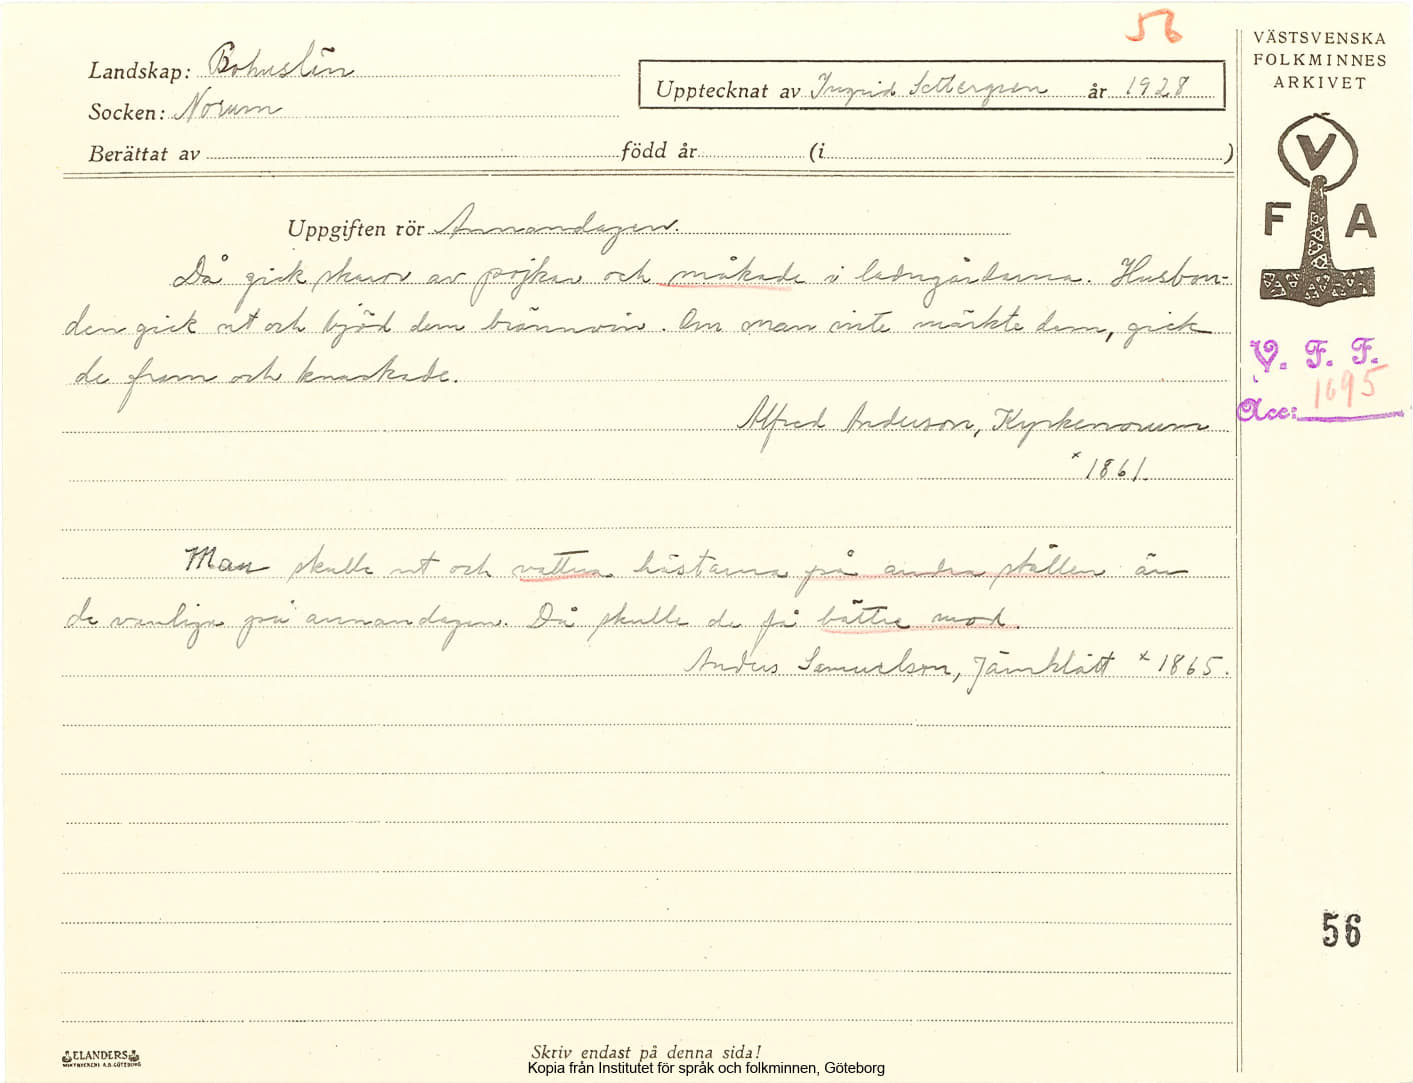 56
VÄSTSVENSKA
FOLKMINNES
ARKIVET
Landskap: Bohuslän
Upptecknat av Ingrid Settergren år 1928
Socken: Norum
Berättat av född år (i )
V
F A
Uppgiften rör Annandagen.
Då gick skaror av pojkar och måkade i ladugårdarna. Husbon-
den gick ut och bjöd dem brännvin. Om man inte märkte dem, gick
de fram och knackade.
V. F. F.
Acc: 1695
Alfred Anderson, Kyrkenorum
* 1861.
Man skulle ut och vattna hästarna på andra ställen än
de vanliga på annandagen. Då skulle de få bättre mod.
Anders Samuelson, Jämklätt * 1865.
56
ELANDERS
Skriv endast på denna sida!
Kopia från Institutet för språk och folkminnen, Göteborg